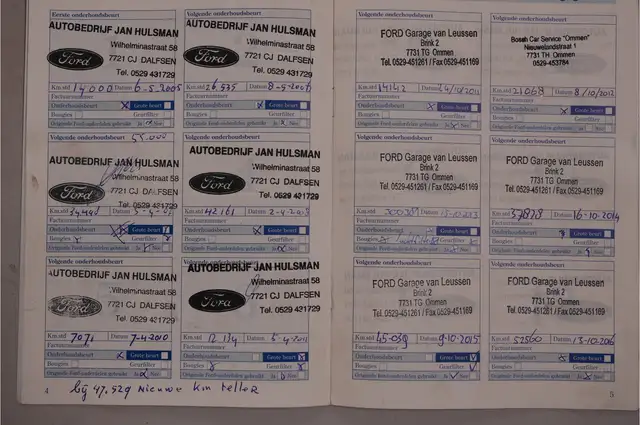 Eerste onderhoudsbeurt
AUTOBEDRIJF JAN HULSMAN
Wilhelminastraat 58
Ford
7721 CJ DALFSEN
Tel. 0529 431729
Km.std 14000 Datum 6-5-2005
Factuurnummer
Onderhoudsbeurt Grote beurt
Bougies Gearfilter
Originele Ford-onderdelen gebruikt Ja Nee
Volgende onderhoudsbeurt
AUTOBEDRIJF JAN HULSMAN
Wilhelminastraat 58
Ford
7721 CJ DALFSEN
Tel. 0529 431729
Km.std 26.535 Datum 8-5-2006
Factuurnummer
Onderhoudsbeurt Grote beurt
Bougies Gearfilter
Originele Ford-onderdelen gebruikt Ja Nee
Volgende onderhoudsbeurt
AUTOBEDRIJF JAN HULSMAN
Wilhelminastraat 58
Ford
7721 CJ DALFSEN
Tel. 0529 431729
Km.std Datum
Factuurnummer
Onderhoudsbeurt Grote beurt
Bougies Gearfilter
Originele Ford-onderdelen gebruikt Ja Nee
Volgende onderhoudsbeurt
AUTOBEDRIJF JAN HULSMAN
Wilhelminastraat 58
Ford
7721 CJ DALFSEN
Tel. 0529 431729
Km.std 42161 Datum
Factuurnummer
Onderhoudsbeurt Grote beurt
Bougies Gearfilter
Originele Ford-onderdelen gebruikt Ja Nee
Volgende onderhoudsbeurt
AUTOBEDRIJF JAN HULSMAN
Wilhelminastraat 58
Ford
7721 CJ DALFSEN
Tel. 0529 431729
Km.std 7071 Datum
Factuurnummer
Onderhoudsbeurt Grote beurt
Bougies Gearfilter
Originele Ford-onderdelen gebruikt Ja Nee
Volgende onderhoudsbeurt
AUTOBEDRIJF JAN HULSMAN
Wilhelminastraat 58
Ford
7721 CJ DALFSEN
Tel. 0529 431729
Km.std Datum
Factuurnummer
Onderhoudsbeurt Grote beurt
Bougies Gearfilter
Originele Ford-onderdelen gebruikt Ja Nee
4 bij 47.529 nieuwe km teller
Volgende onderhoudsbeurt
FORD Garage van Leussen
Brink 2
7731 TG Ommen
Tel. 0529-451261 / Fax 0529-451169
Km.std 14142 Datum
Factuurnummer
Onderhoudsbeurt Grote beurt
Bougies Gearfilter
Originele Ford-onderdelen gebruikt Ja Nee
Volgende onderhoudsbeurt
Bosch Car Service "Ommen"
Nieuwelandstraat 1
7731 TH Ommen
0529-453784
Km.std 21068 Datum 8/10/2012
Factuurnummer
Onderhoudsbeurt Grote beurt
Bougies Gearfilter
Originele Ford-onderdelen gebruikt Ja Nee
Volgende onderhoudsbeurt
FORD Garage van Leussen
Brink 2
7731 TG Ommen
Tel. 0529-451261 / Fax 0529-451169
Km.std Datum
Factuurnummer
Onderhoudsbeurt Grote beurt
Bougies Gearfilter
Originele Ford-onderdelen gebruikt Ja Nee
Volgende onderhoudsbeurt
FORD Garage van Leussen
Brink 2
7731 TG Ommen
Tel. 0529-451261 / Fax 0529-451169
Km.std Datum 16-10-2014
Factuurnummer
Onderhoudsbeurt Grote beurt
Bougies Gearfilter
Originele Ford-onderdelen gebruikt Ja Nee
Volgende onderhoudsbeurt
FORD Garage van Leussen
Brink 2
7731 TG Ommen
Tel. 0529-451261 / Fax 0529-451169
Km.std Datum 9-10-2015
Factuurnummer
Onderhoudsbeurt Grote beurt
Bougies Gearfilter
Originele Ford-onderdelen gebruikt Ja Nee
Volgende onderhoudsbeurt
FORD Garage van Leussen
Brink 2
7731 TG Ommen
Tel. 0529-451261 / Fax 0529-451169
Km.std 52560 Datum
Factuurnummer
Onderhoudsbeurt Grote beurt
Bougies Gearfilter
Originele Ford-onderdelen gebruikt Ja Nee
5